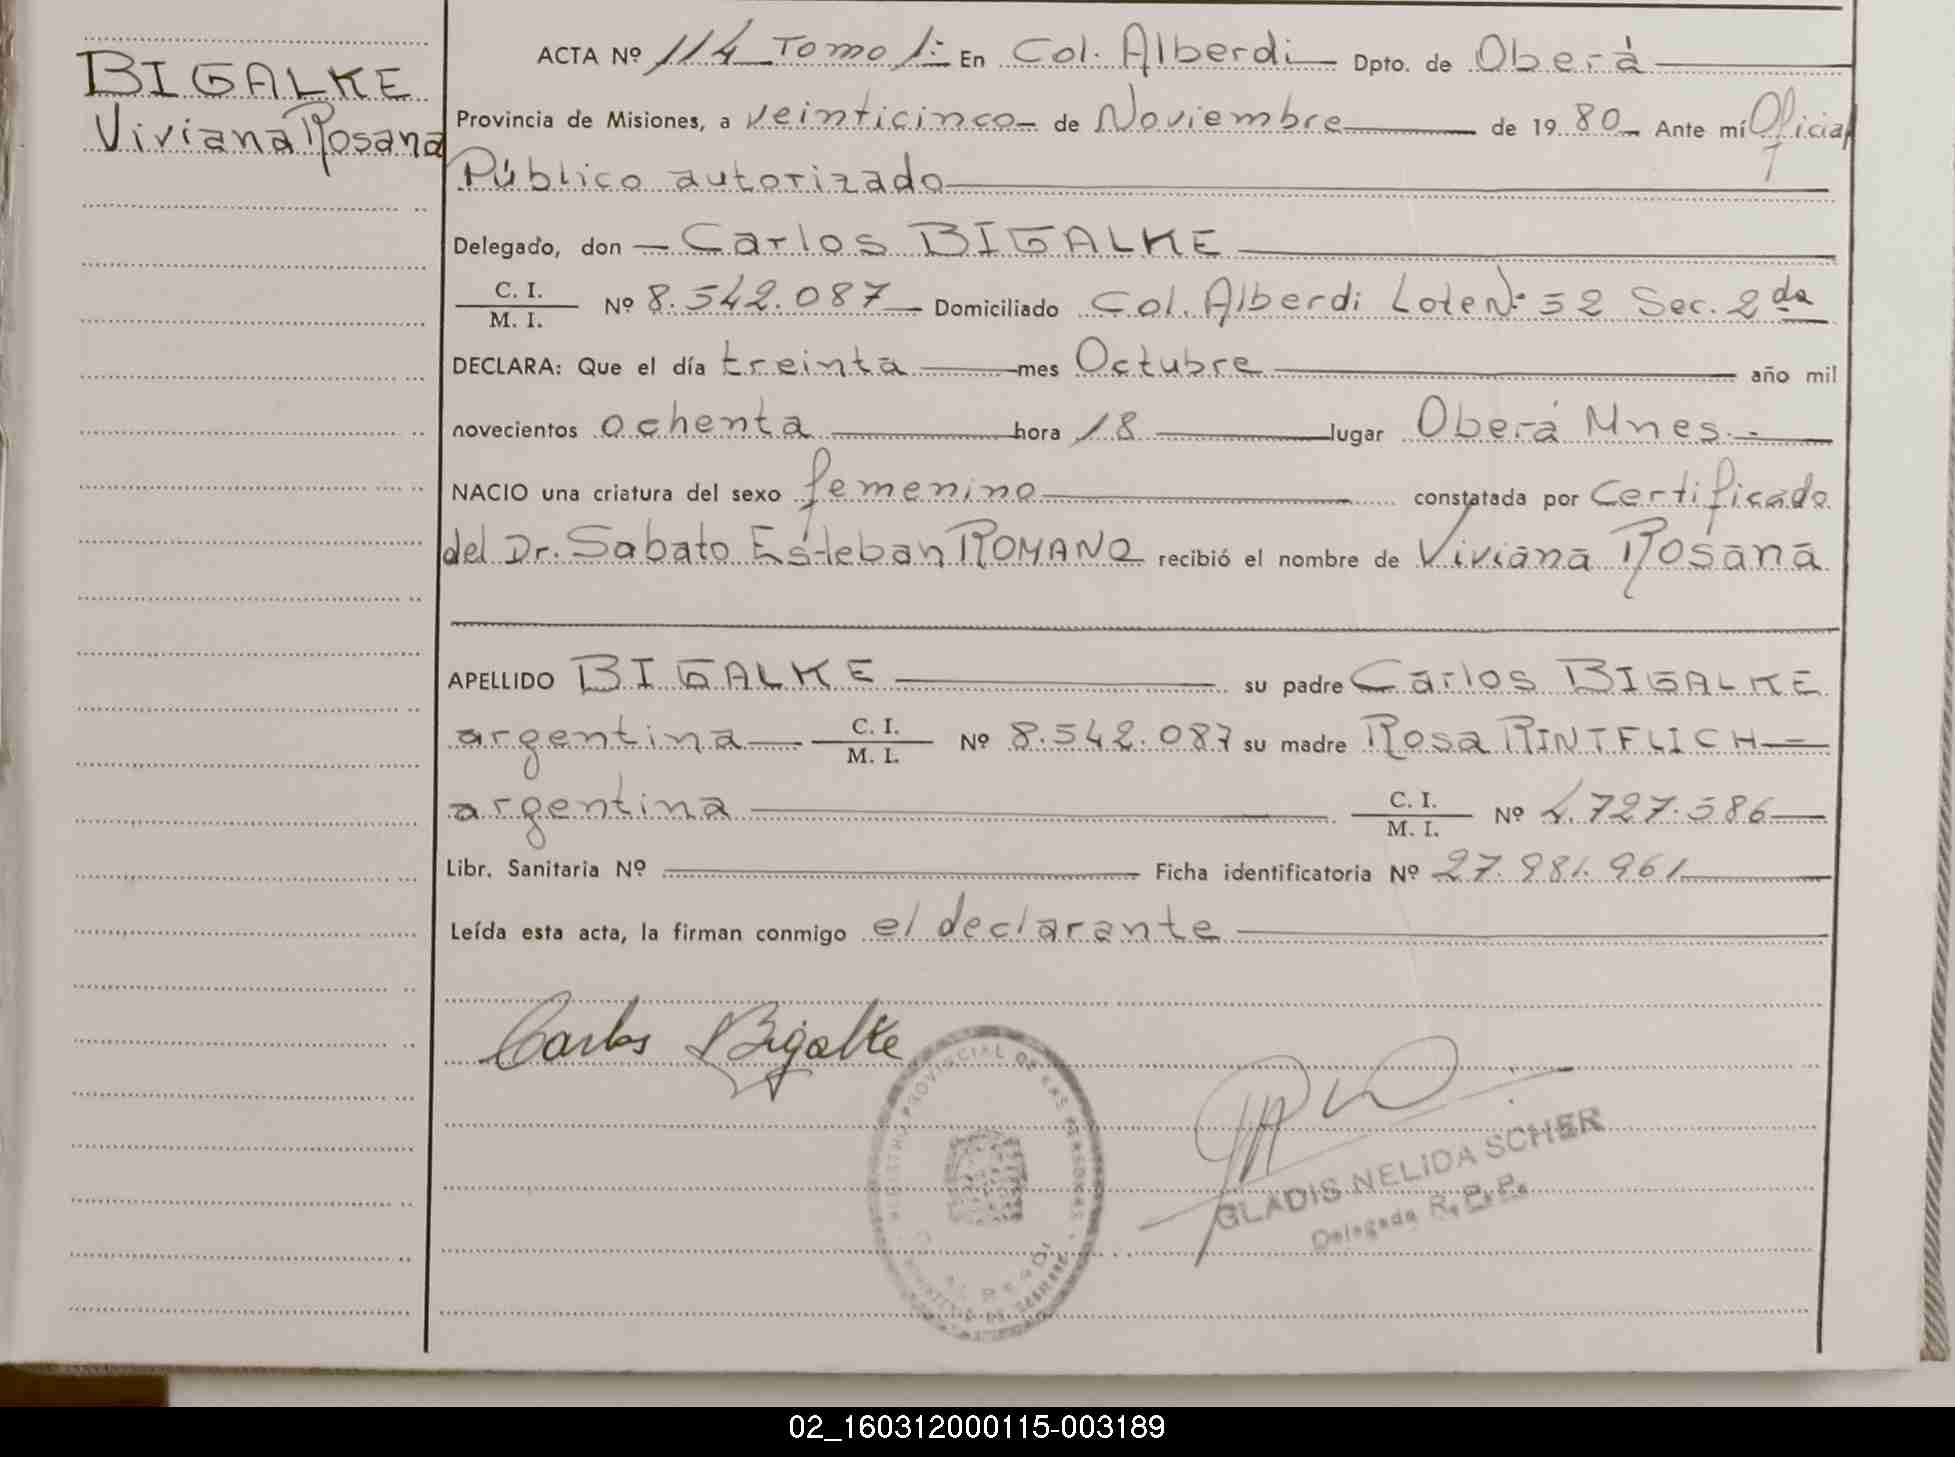 BIGALKE
Viviana Rosana
ACTA Nº 114 Tomo 1º En Col. Alberdi Dpto. de Oberá
Provincia de Misiones, a veinticinco de Noviembre de 1980 Ante mí Oficial
Público autorizado
Delegado, don Carlos BIGALKE
C. I.
M. I.
Nº 8.542.087 Domiciliado Col. Alberdi Lote Nº 52 Sec. 2da
DECLARA: Que el día treinta mes Octubre año mil
novecientos ochenta hora 18 lugar Oberá Mnes.
NACIO una criatura del sexo femenino constatada por Certificado
del Dr. Sabato Esteban ROMANO recibió el nombre de Viviana Rosana
APELLIDO BIGALKE su padre Carlos BIGALKE
argentina C. I. M. I. Nº 8.542.087 su madre Rosa RINTFLICH
argentina C. I. M. I. Nº 4.727.586
Libr. Sanitaria Nº Ficha identificatoria Nº 27.981.961
Leída esta acta, la firman conmigo el declarante
Carlos Bigalke
REGISTRO PROVINCIAL DE LAS PERSONAS
GLADIS NELIDA SCHER
Delegada R. P. P.
02_160312000115-003189